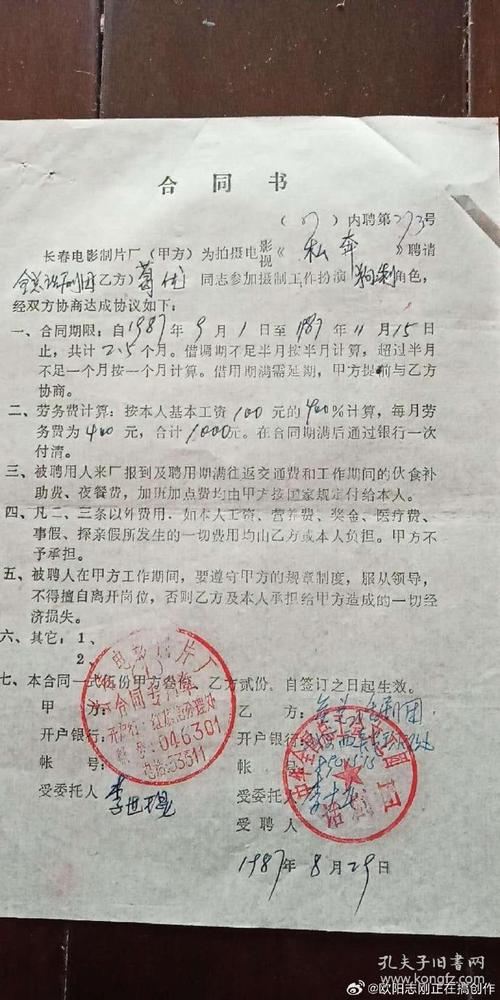 合同书
(87)内聘第273号
长春电影制片厂(甲方)为拍摄电影视《私奔》聘请
全总话剧团乙方)葛优同志参加摄制工作扮演角色,
经双方协商达成协议如下:
一、合同期限:自1987年9月1日至1987年11月15日
止,共计2.5个月。借调期不足半月按半月计算,超过半月
不足一个月按一个月计算。借用期满需延期,甲方提前与乙方
协商。
二、劳务费计算:按本人基本工资100元的400%计算,每月劳
务费为400元,合计1000元。在合同期满后通过银行一次
付清。
三、被聘用人来厂报到及聘用期满往返交通费和工作期间的伙食补
助费、夜餐费,加班加点费均由甲方按国家规定付给本人。
四、凡二、三条以外费用.如本人工资、营养费、奖金、医疗费、
事假、探亲假所发生的一切费用均由乙方或本人负担。甲方不
予承担。
五、被聘人在甲方工作期间,要遵守甲方的规章制度,服从领导,
不得擅自离开岗位,否则乙方及本人承担给甲方造成的一切经
济损失。
六、其它:1、
2、
七、本合同一式伍份甲方叁份,乙方贰份,自签订之日起生效。
甲方: 乙方:全总话剧团
开户银行: 开户银行:
帐号: 帐号:
受委托人 受委托人
受聘人
1987年8月29日
电影制片厂
合同专用章
开户行:
帐号:046301
电话:53511
话剧团
孔夫子旧书网
kongfz.com
@欧阳志刚正在搞创作